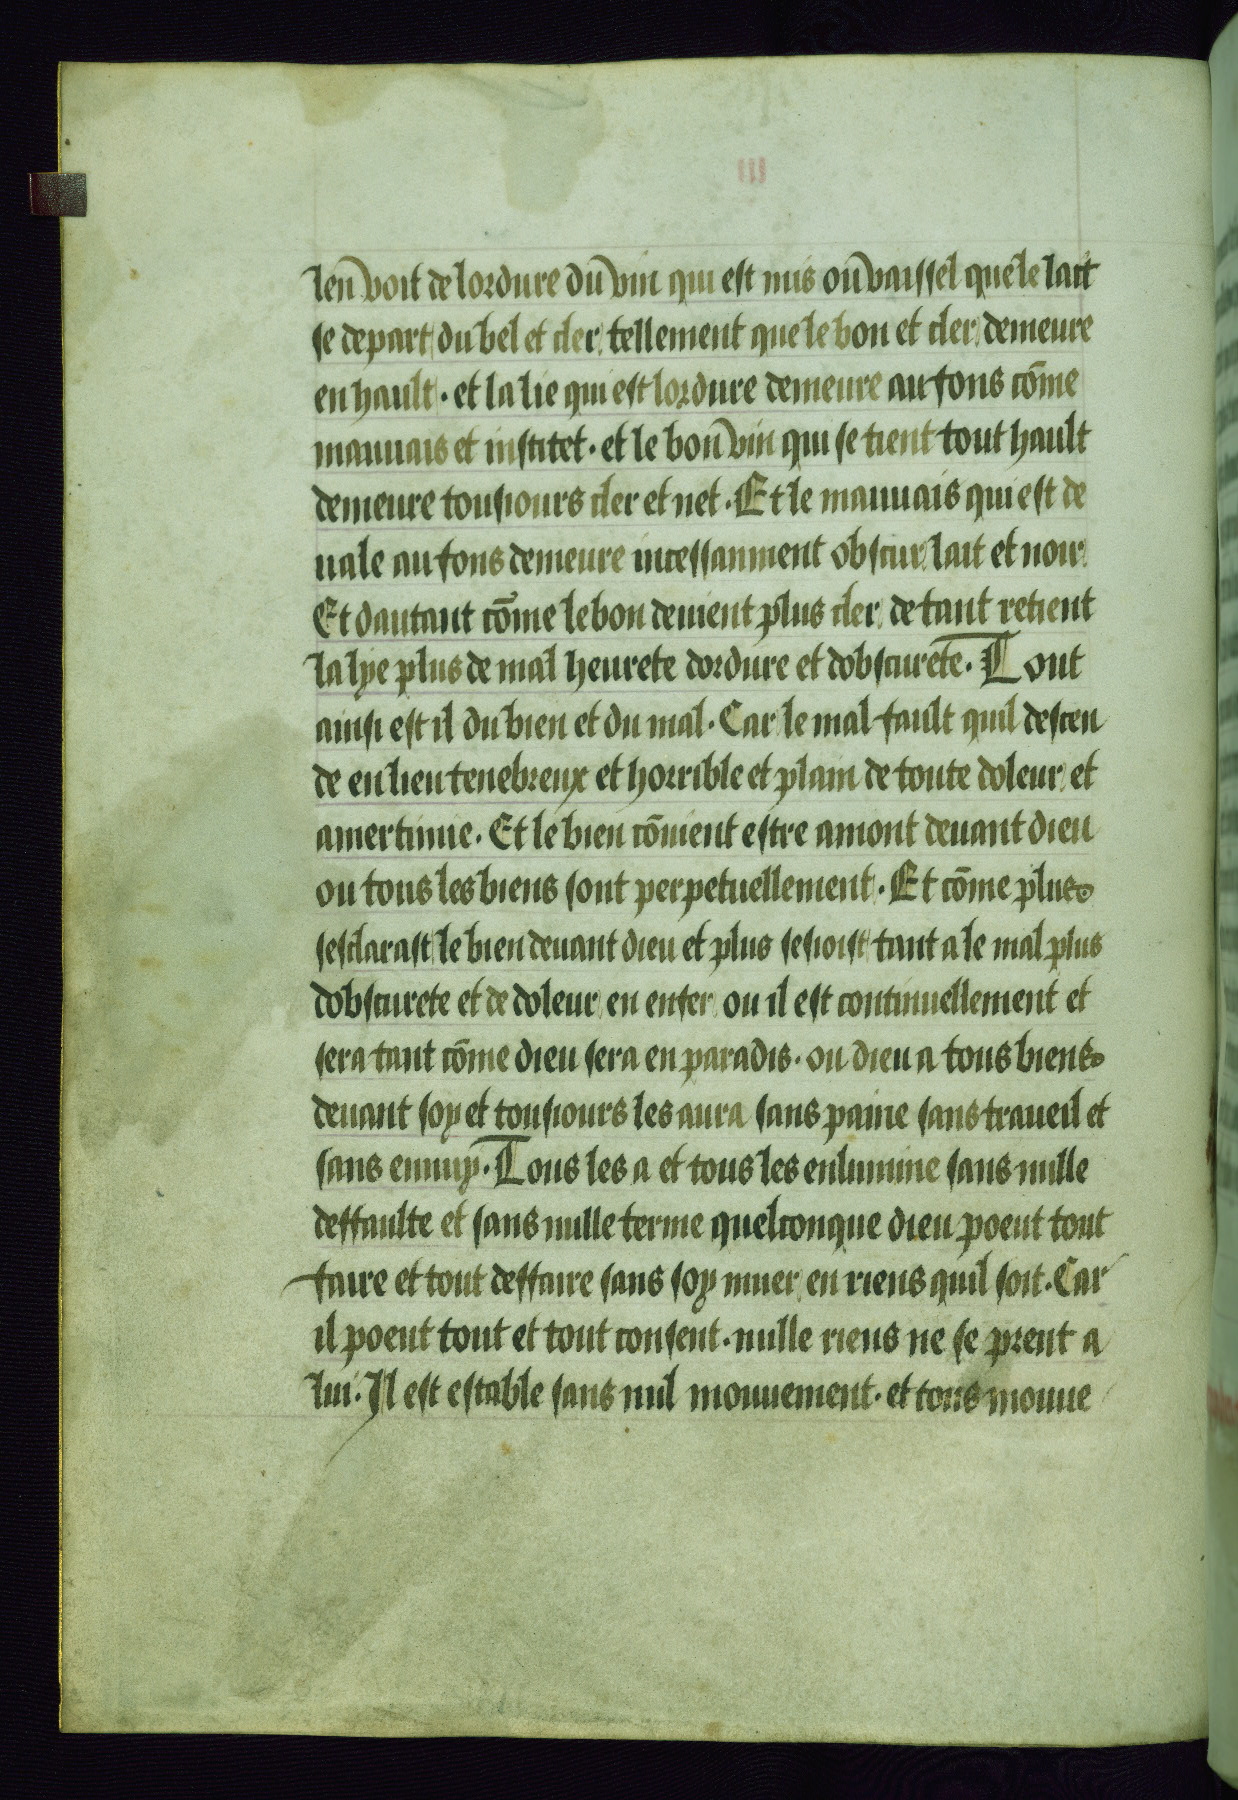 len voit de lordure du vin qui est mis ou vaissel que le lait
se depart du bel et cler tellement que le bon et cler demeure
en hault · et la lie qui est lordure demeure au fons cōme
mauuais et institet · et le bon vin qui se tient tout hault
demeure tousiours cler et net · Et le mauuais qui est de
uale au fons demeure incessanment obscur lait et noir
Et dautant cōme le bon deuient plus cler de tant retient
la lye plus de mal heurete dordure et dobscurete · Tout
ainsi est il du bien et du mal · Car le mal fault quil descen
de en lieu tenebreux et horrible et plain de toute doleur et
amertume · Et le bien cōuient estre amont deuant dieu
ou tous les biens sont perpetuellement · Et cōme plus
sesclarast le bien deuant dieu et plus sesioist tant a le mal plus
dobscurete et de doleur en enfer ou il est continuellement et
sera tant cōme dieu sera en paradis · ou dieu a tous biens
deuant soy et tousiours les aura sans paine sans traueil et
sans ennuy · Tous les a et tous les enlumine sans nulle
deffaulte et sans nulle terme quelconque dieu poeut tout
faire et tout deffaire sans soy muer en riens quil soit · Car
il poeut tout et tout consent · nulle riens ne se prent a
lui · Il est estable sans nul mouuement · et tous mouue